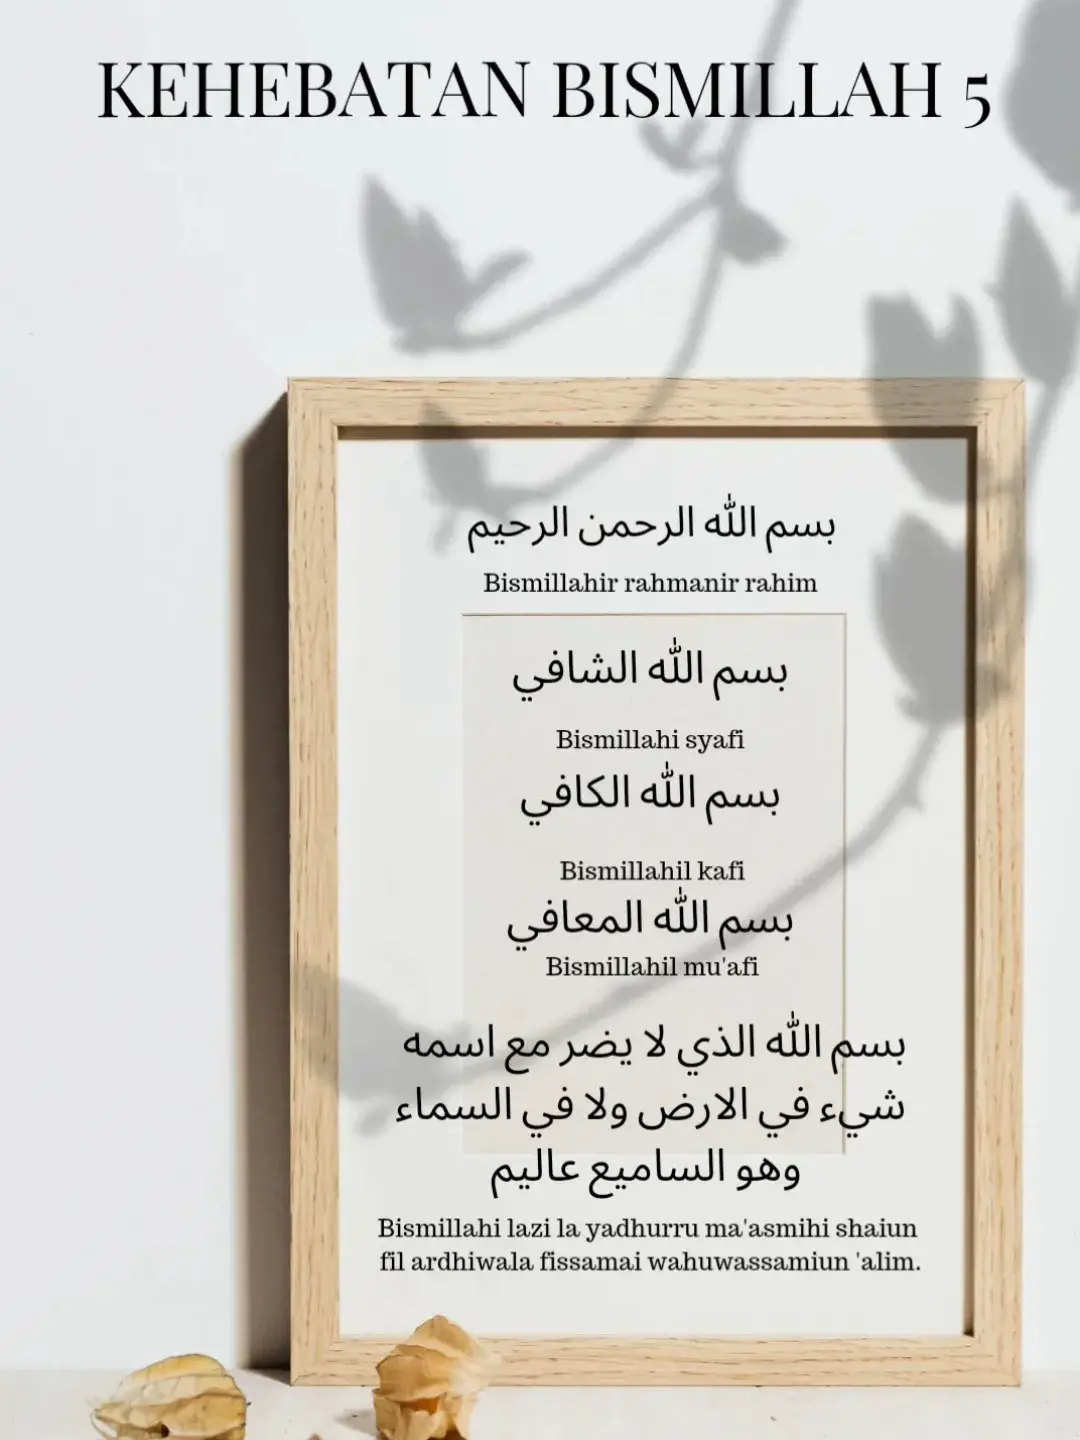 KEHEBATAN BISMILLAH 5
بسم الله الرحمن الرحيم
Bismillahir rahmanir rahim
بسم الله الشافي
Bismillahi syafi
بسم الله الكافي
Bismillahil kafi
بسم الله المعافي
Bismillahil mu'afi
بسم الله الذي لا يضر مع اسمه
شيء في الارض ولا في السماء
وهو الساميع عاليم
Bismillahi lazi la yadhurru ma'asmihi shaiun
fil ardhiwala fissamai wahuwassamiun 'alim.